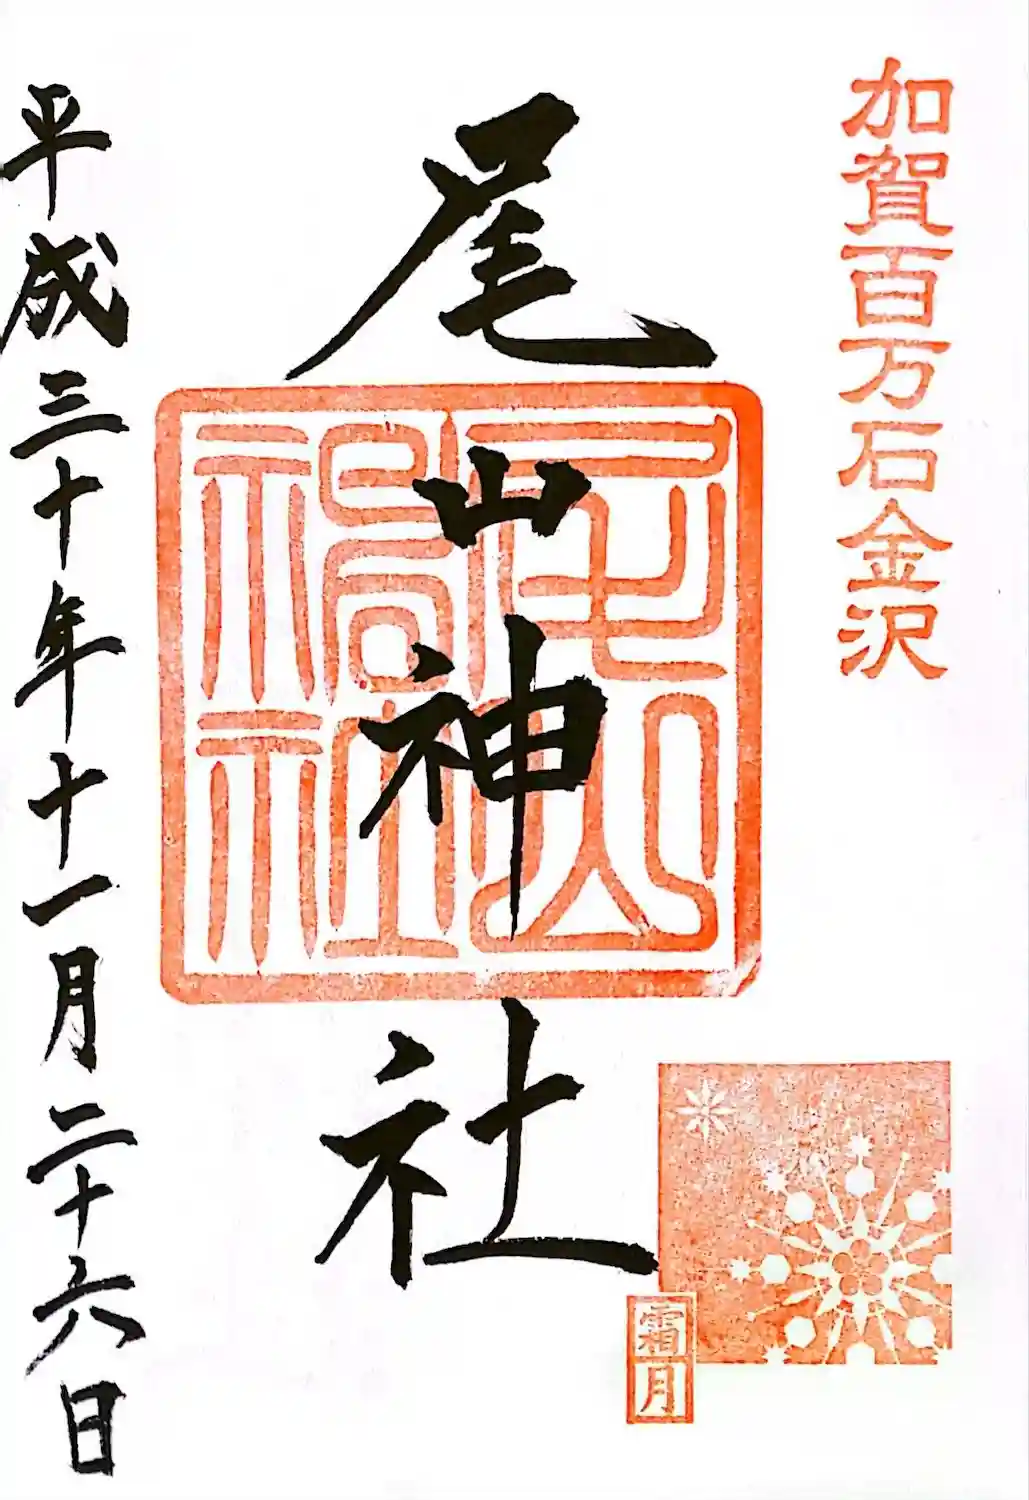 加賀百万石金沢
尾山神社
尾山神社
霜月
平成三十年十一月二十六日